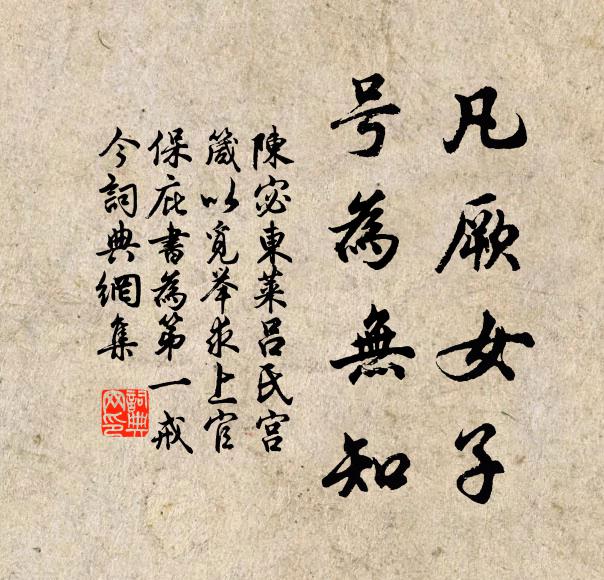 凡厥女子
号為無知
陳宓東萊吕氏宫
箴以覓举求上官
保庇書為第一戒
今詞典網集
詞典
网印